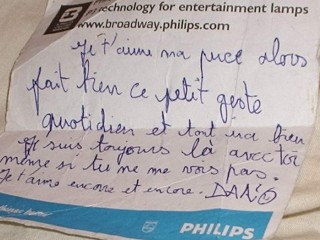 technology for entertainment lamps
www.broadway.philips.com
Je t'aime ma puce alors
fait bien ce petit geste
quotidien et tout ira bien
Je suis toujours là avec toi
même si tu ne me vois pas.
Je t'aime encore et encore. DAN
PHILIPS